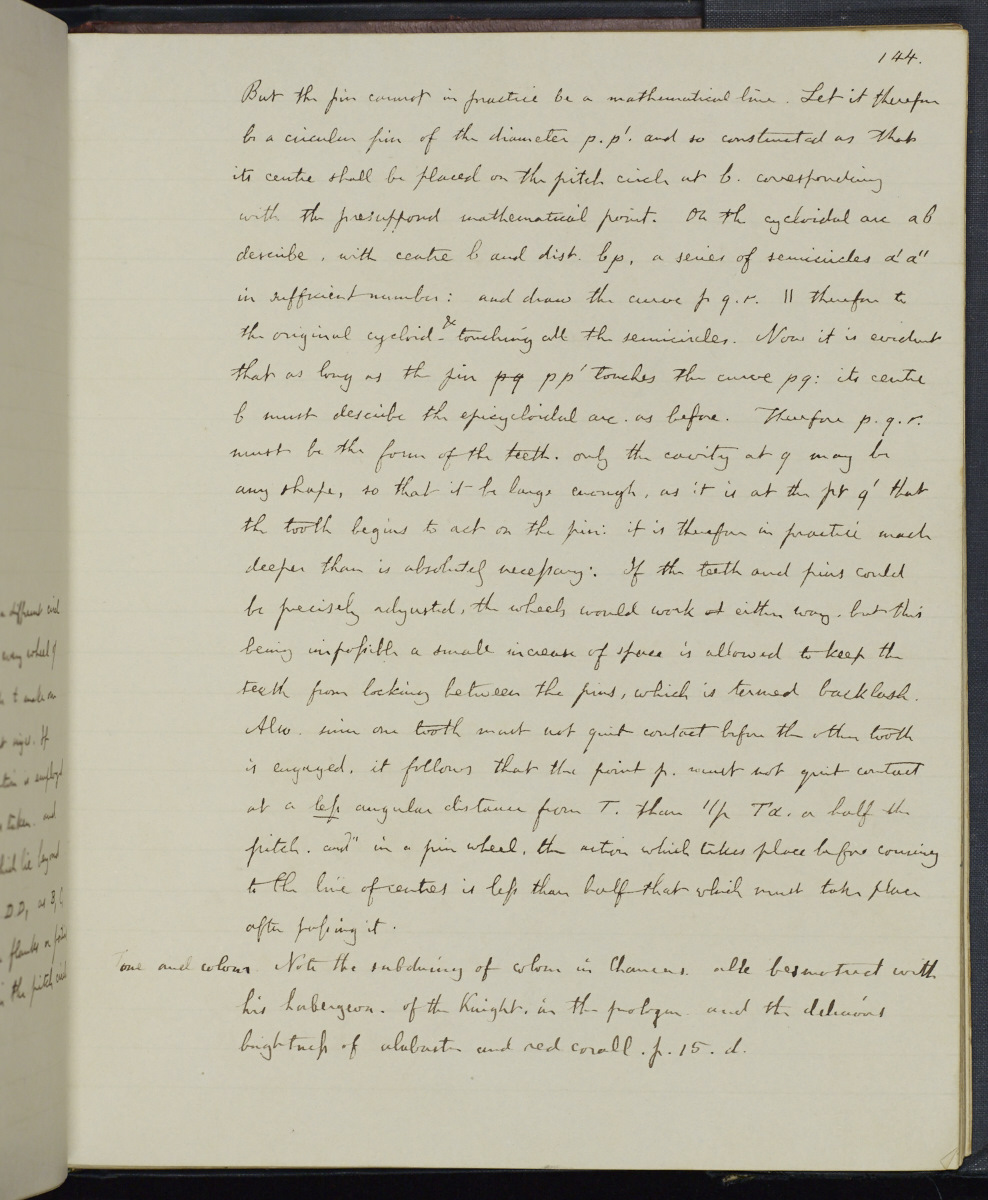 144.
But the pin cannot in practice be a mathematical line. Let it therefore
be a circular pin of the diameter p. p'. and so constructed as that
its centre shall be placed on the pitch circle at b. corresponding
with the presupposed mathematical point. On the cycloidal arc a b
describe, with centre b and dist. bp, a series of semicircles a' a"
in sufficient number: and draw the curve p q. r. || therefore to
the original cycloid - & touching all the semicircles. Now it is evident
that as long as the pin pq p p' touches the curve pq: its centre
b must describe the epicycloidal arc. as before. Therefore p. q. r.
must be the form of the teeth. only the cavity at q may be
any shape, so that it be large enough, as it is at the pt q' that
the tooth begins to act on the pin: it is therefore in practice made
deeper than is absolutely necessary: If the teeth and pins could
be precisely adjusted, the wheels would work either way. but this
being impossible a small increase of space is allowed to keep the
teeth from locking between the pins, which is termed backlash.
Also. since one tooth must not quit contact before the other tooth
is engaged, it follows that the point p. must not quit contact
at a less angular distance from T. than Ta. or half the
pitch. and in a pin wheel, the action which takes place before coming
to the line of centres is less than half that which must take place
after passing it.
Tone and colour. Note the subduing of colour in Chaucer. alle besmotred with
his habergeon. of the Knight. in the prologue. and the delicious
brightness of alabaster and red corall. p. 15. d.
different
wheel
If
is employed
taken. and
lie beyond
D D, as B,
flanks
in the pitch